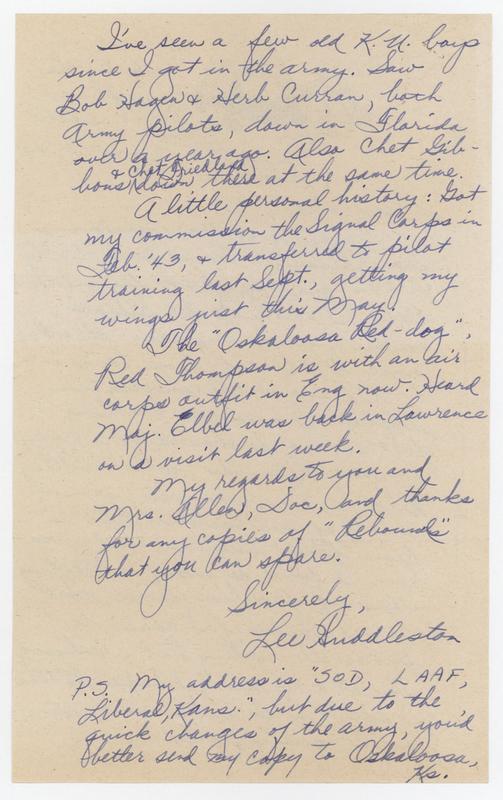 I've seen a few old K.U. boys
since I got in the army. Saw
Bob Hagen & Herb Curran, both
Army pilots, down in Florida
over a year ago. Also Chet Gib-
& Chet Friedland
bons down there at the same time.
A little personal history: Got
my commission the Signal Corps in
Feb. '43, & transferred to pilot
training last Sept., getting my
wings just this May.
The "Oskaloosa Red-dog",
Red Thompson is with an air
corps outfit in Eng now. Heard
Maj. Elbel was back in Lawrence
on a visit last week.
My regards to you and
Mrs. Allen, Doc, and thanks
for any copies of "Rebounds"
that you can spare.
Sincerely,
Lee Huddleston
P.S. My address is "SOD, LAAF,
Liberal, Kans.", but due to the
quick changes of the army, you'd
better send my copy to Oskaloosa,
Ks.